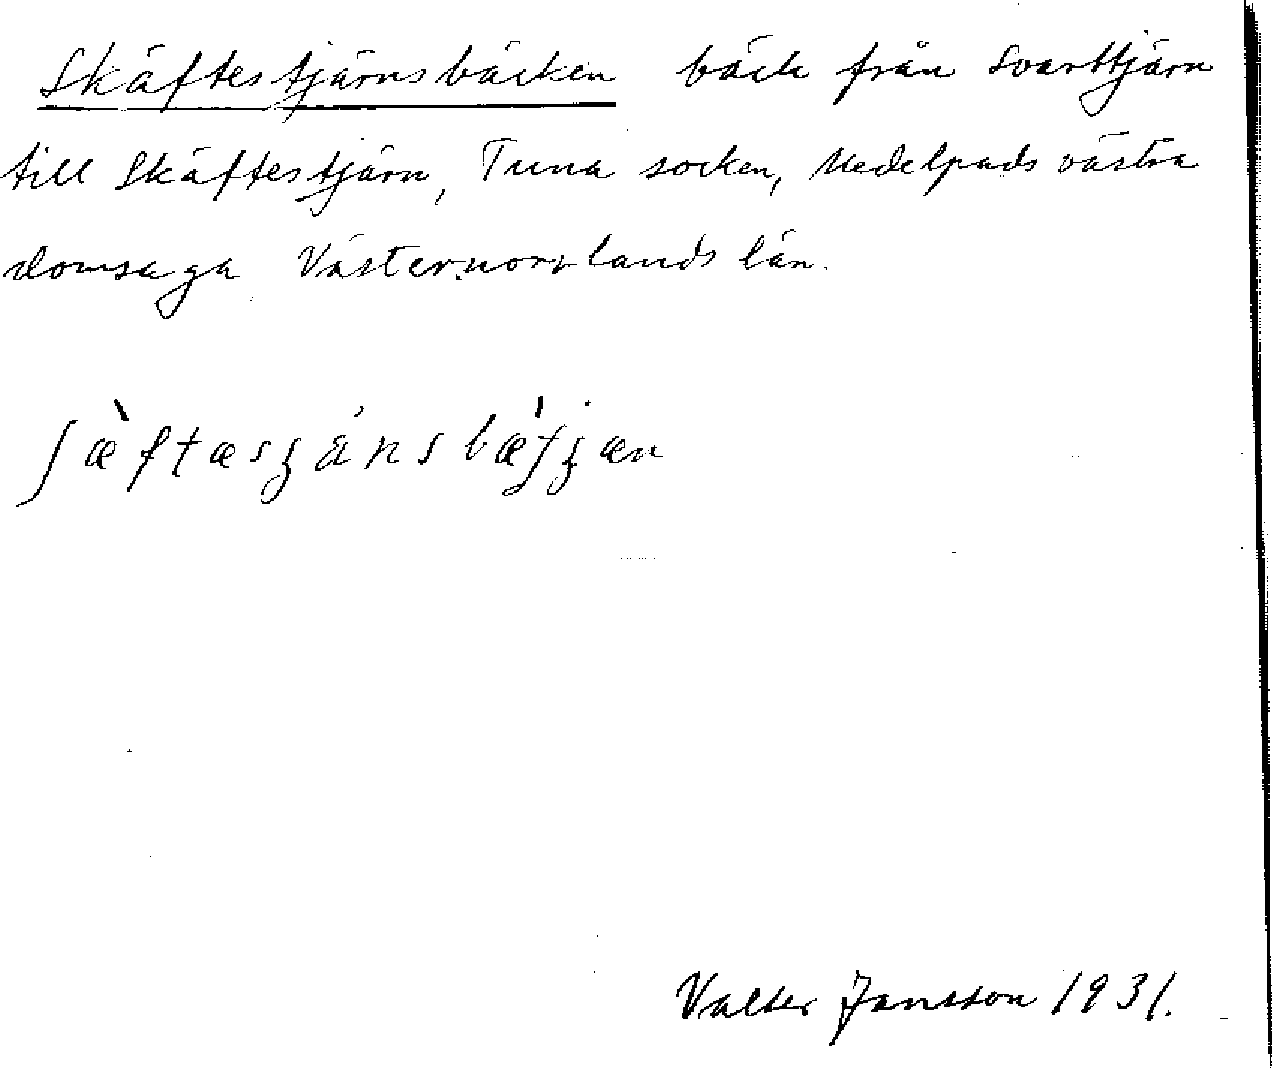 Skäftestjärnsbäcken bäck från Svarttjärn
till Skäftestjärn, Tuna socken, Medelpads västra
domsaga Västernorrlands län.
Valter Jansson 1931.